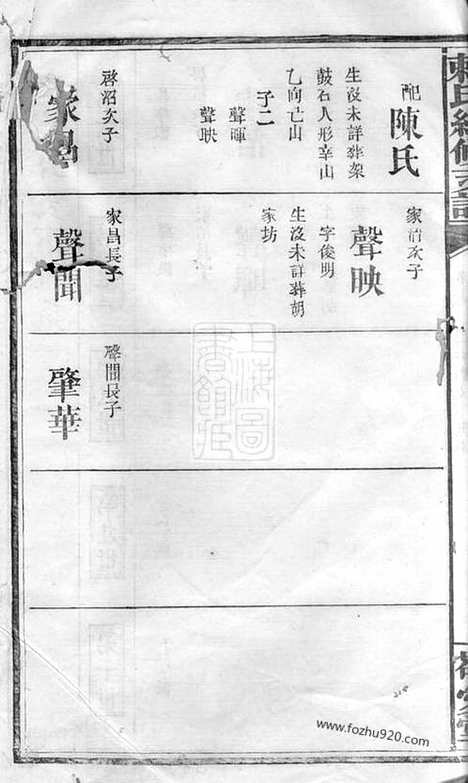 配陳氏
生沒未詳葬架
鼓石人形幸山
乙向亡山
子二
聲暉
聲映
啓沼次子
家昌
家㳓次子
聲映
字俊明
生沒未詳葬胡
家坊
家昌長子
聲聞
聲聞長子
肇華
上海圖書館藏
www.fozhu920.com